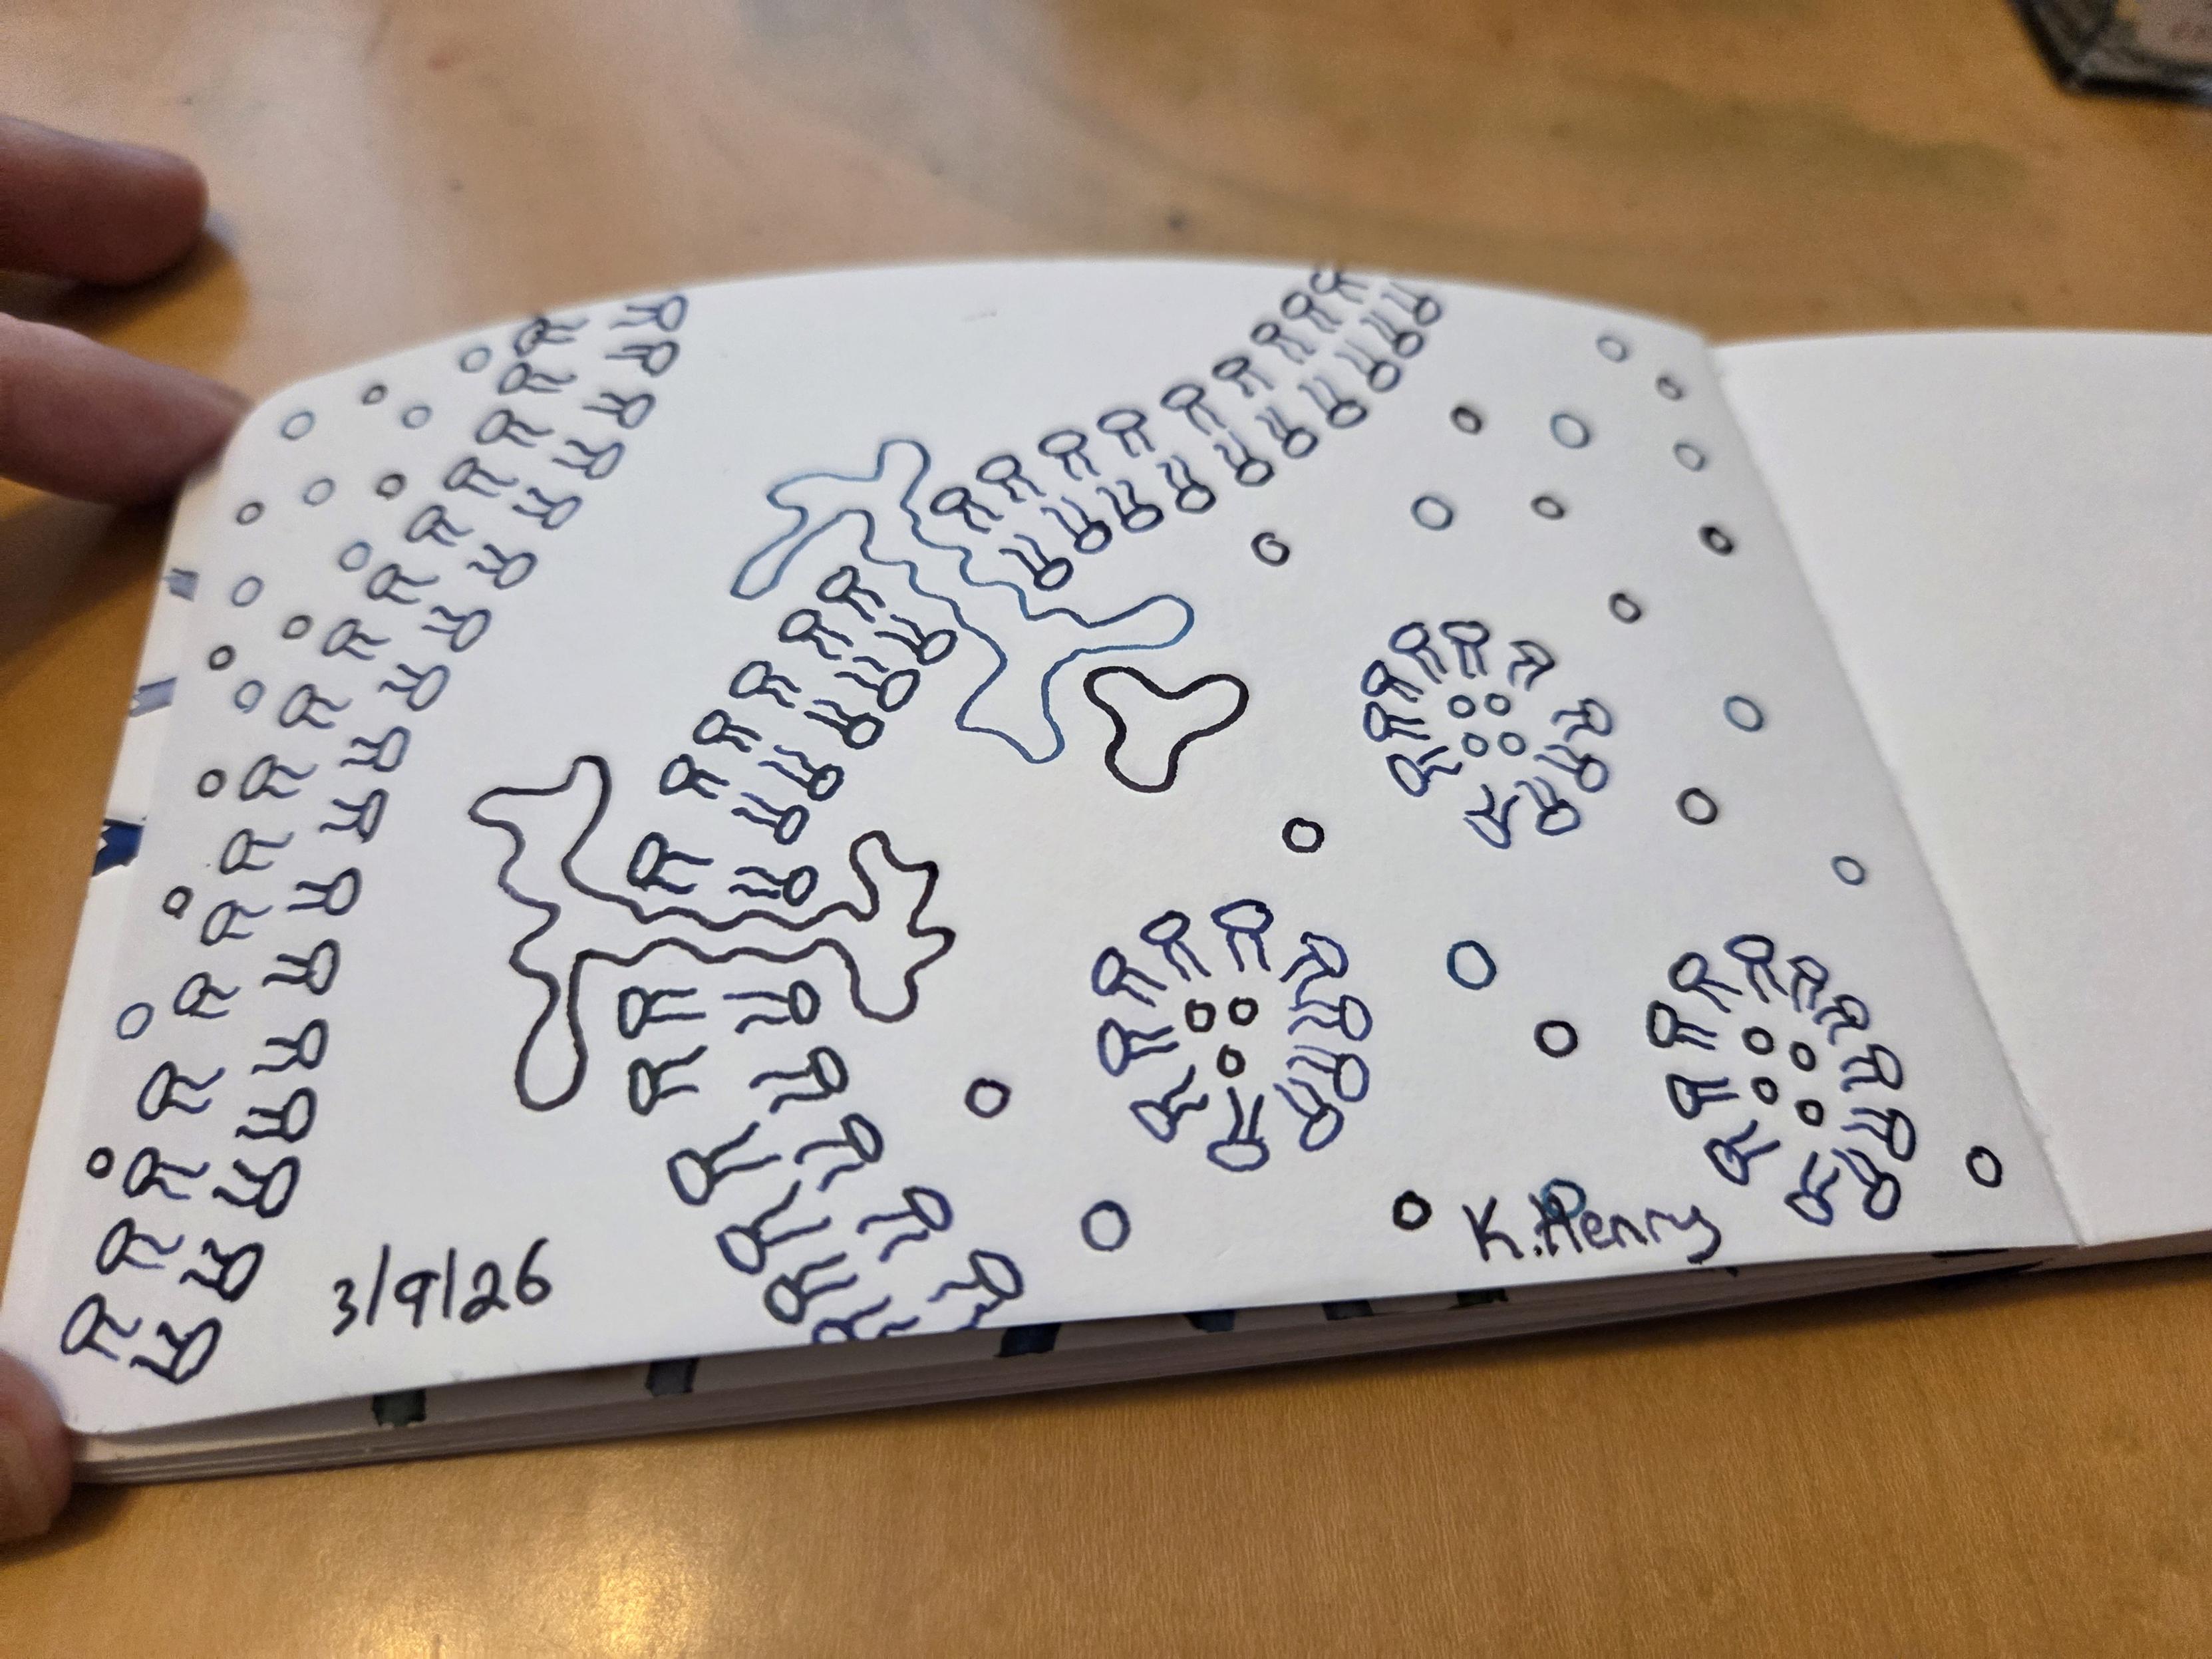 3/9/26
K. Henry